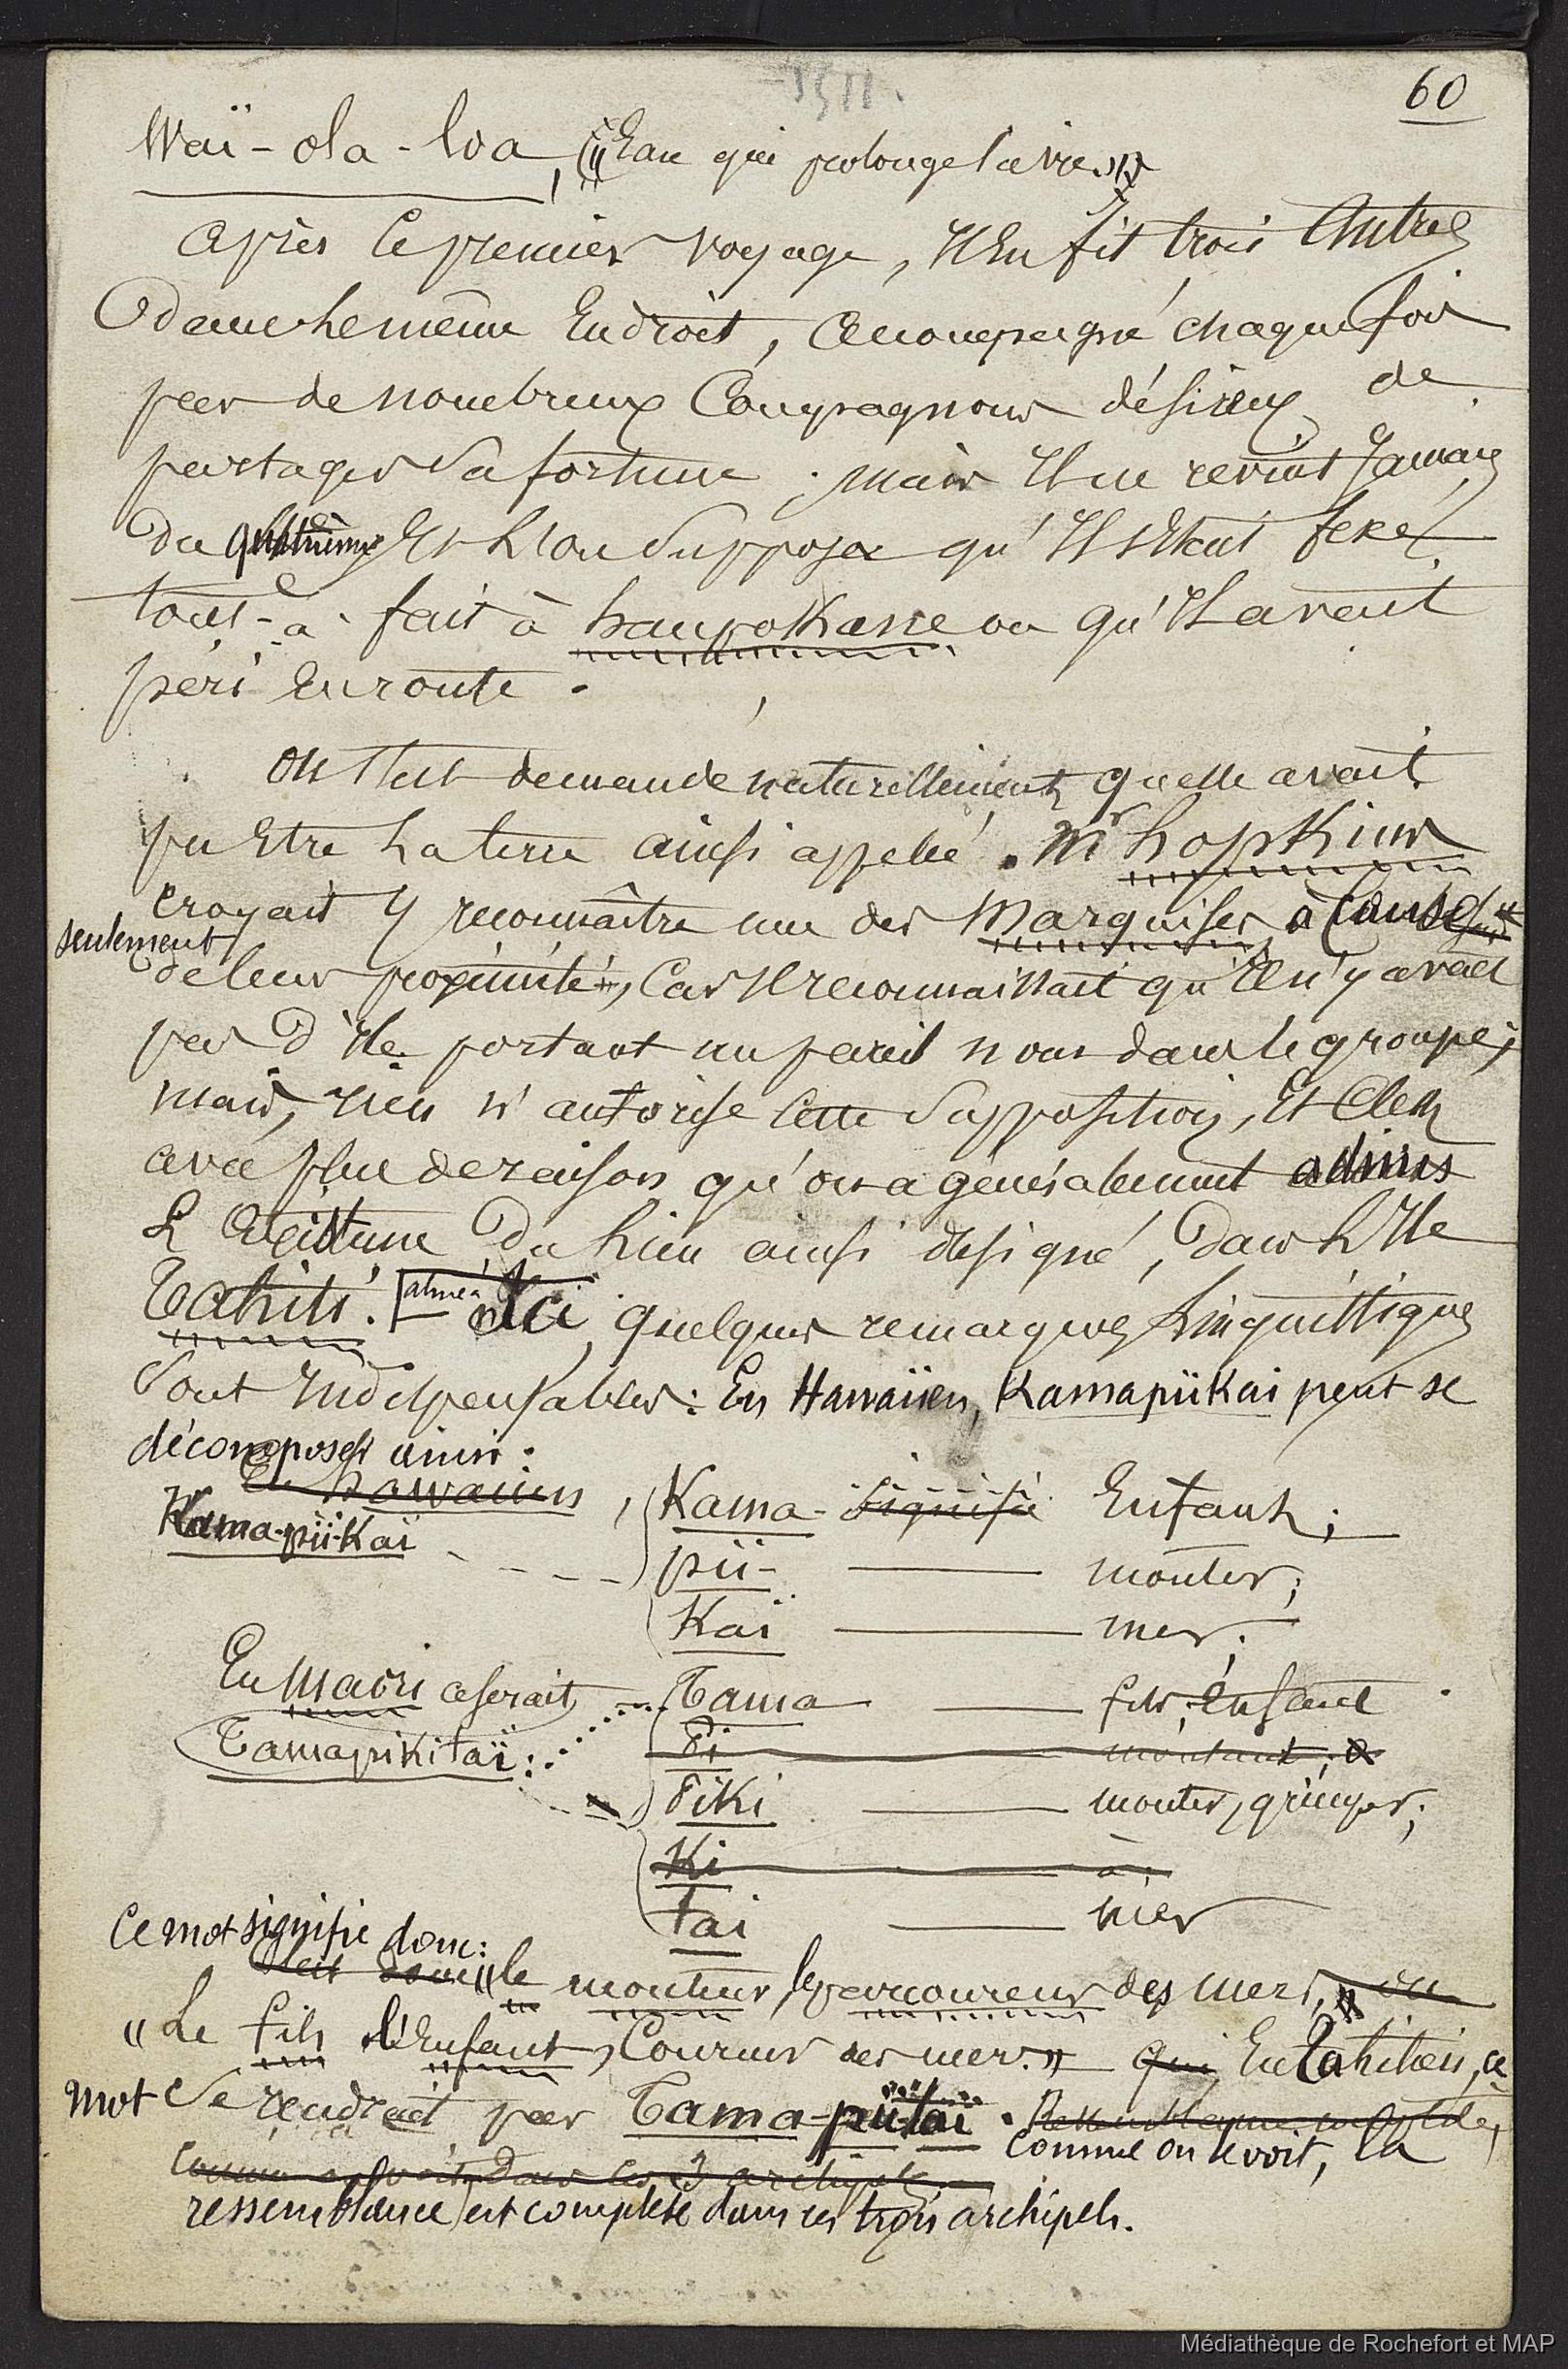 60
Waï-ola-loa, («Eau qui prolonge la vie.»)
Après ce premier voyage, Il en fit trois Autres
Dans le même Endroit, accompagné chaque fois
par de nombreux Compagnons désireux de
partager sa fortune ; mais Il ne revint Jamais
Du quatrième Et l'on supposa qu'Il s'était fixé
tout-à-fait à haupokane ou qu'Il avait
péri En route.
On s'est demandé naturellement quelle avait
pu Etre la terre ainsi appelé. Mr hopkins
croyait y reconnaître une des Marquises à cause
seulement
de leur proximité, Car Il reconnaissait qu'Il n'y avait
pas D'Ile portant un pareil nom dans le groupe;
mais, rien n'autorise cette supposition, Et C'est
avec plus de raison qu'on a généralement admis
L'Existence Du lieu ainsi désigné, Dans L'Ile
Tahiti. [alinéa Ici, quelques remarques Linguistiques
sont Indispensables: En Hawaiien, Kamapiikai peut se
décomposer ainsi:
En hawaiien
Kama-pii-Kaï
Kama - signifie Enfant;
pii- — monter;
Kaï — mer;
En Maori ce serait
Tamapikitaï:
Tama — fils, enfant
Pi — montant;
Piki — monter, grimper;
Ki — à
tai — mer
Ce mot signifie donc:
C'est donc «le monteur, le parcoureur des mers, ou
«Le fils L'Enfant, Coureur des mers.» qui En Tahitien, ce
mot se rendrait par Tama-pii-taï. Ressemblance complète,
comme on le voit, la
comme on voit, Dans les 3 archipels.
ressemblance est complète dans ces trois archipels.
Médiathèque de Rochefort et MAP